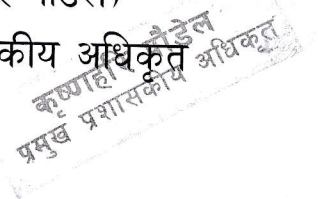 कीय अधिकृत
कृष्णहरि पौडेल
प्रमुख प्रशासकीय अधिकृत